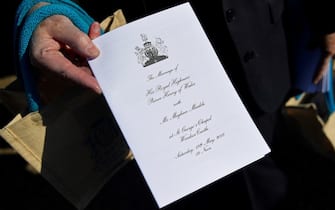 The Marriage of
His Royal Highness
Prince Henry of Wales
with
Ms. Meghan Markle
at St George's Chapel
Windsor Castle
Saturday, 19th May 2018
12 Noon